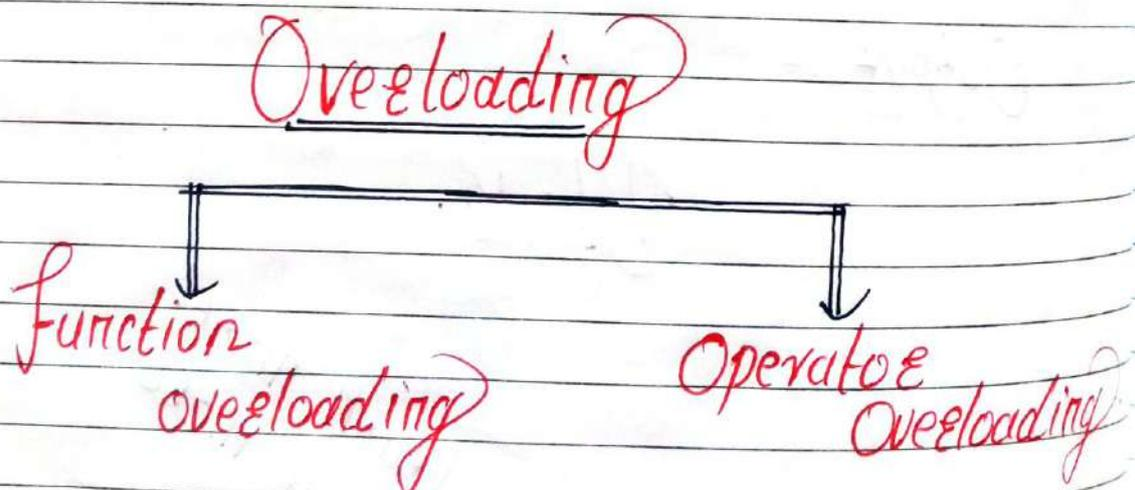 Overloading
function
overloading
Operator
Overloading